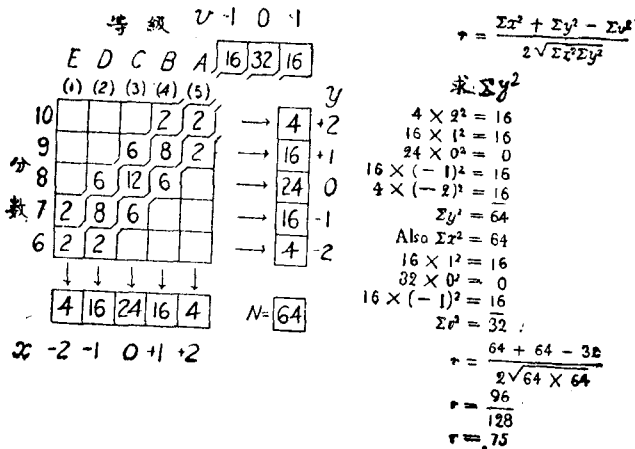 等級 v -1 0 ·1
E D C B A 16 32 16
(1) (2) (3) (4) (5)
y
10 2 2 → 4 +2
9 6 8 2 → 16 +1
8 6 12 6 → 24 0
7 2 8 6 → 16 -1
6 2 2 → 4 -2
分數
↓ ↓ ↓ ↓ ↓
4 16 24 16 4 N= 64
x -2 -1 0 +1 +2
r = \frac{Σx² + Σy² − Σv²}{2√Σx²Σy²}
求 Σy²
4 × 2² = 16
16 × 1² = 16
24 × 0² = 0
16 × (−1)² = 16
4 × (−2)² = 16
Σy² = 64
Also Σx² = 64
16 × 1² = 16
32 × 0² = 0
16 × (−1)² = 16
Σv² = 32
r = \frac{64 + 64 − 32}{2√64 × 64}
r = \frac{96}{128}
r = .75